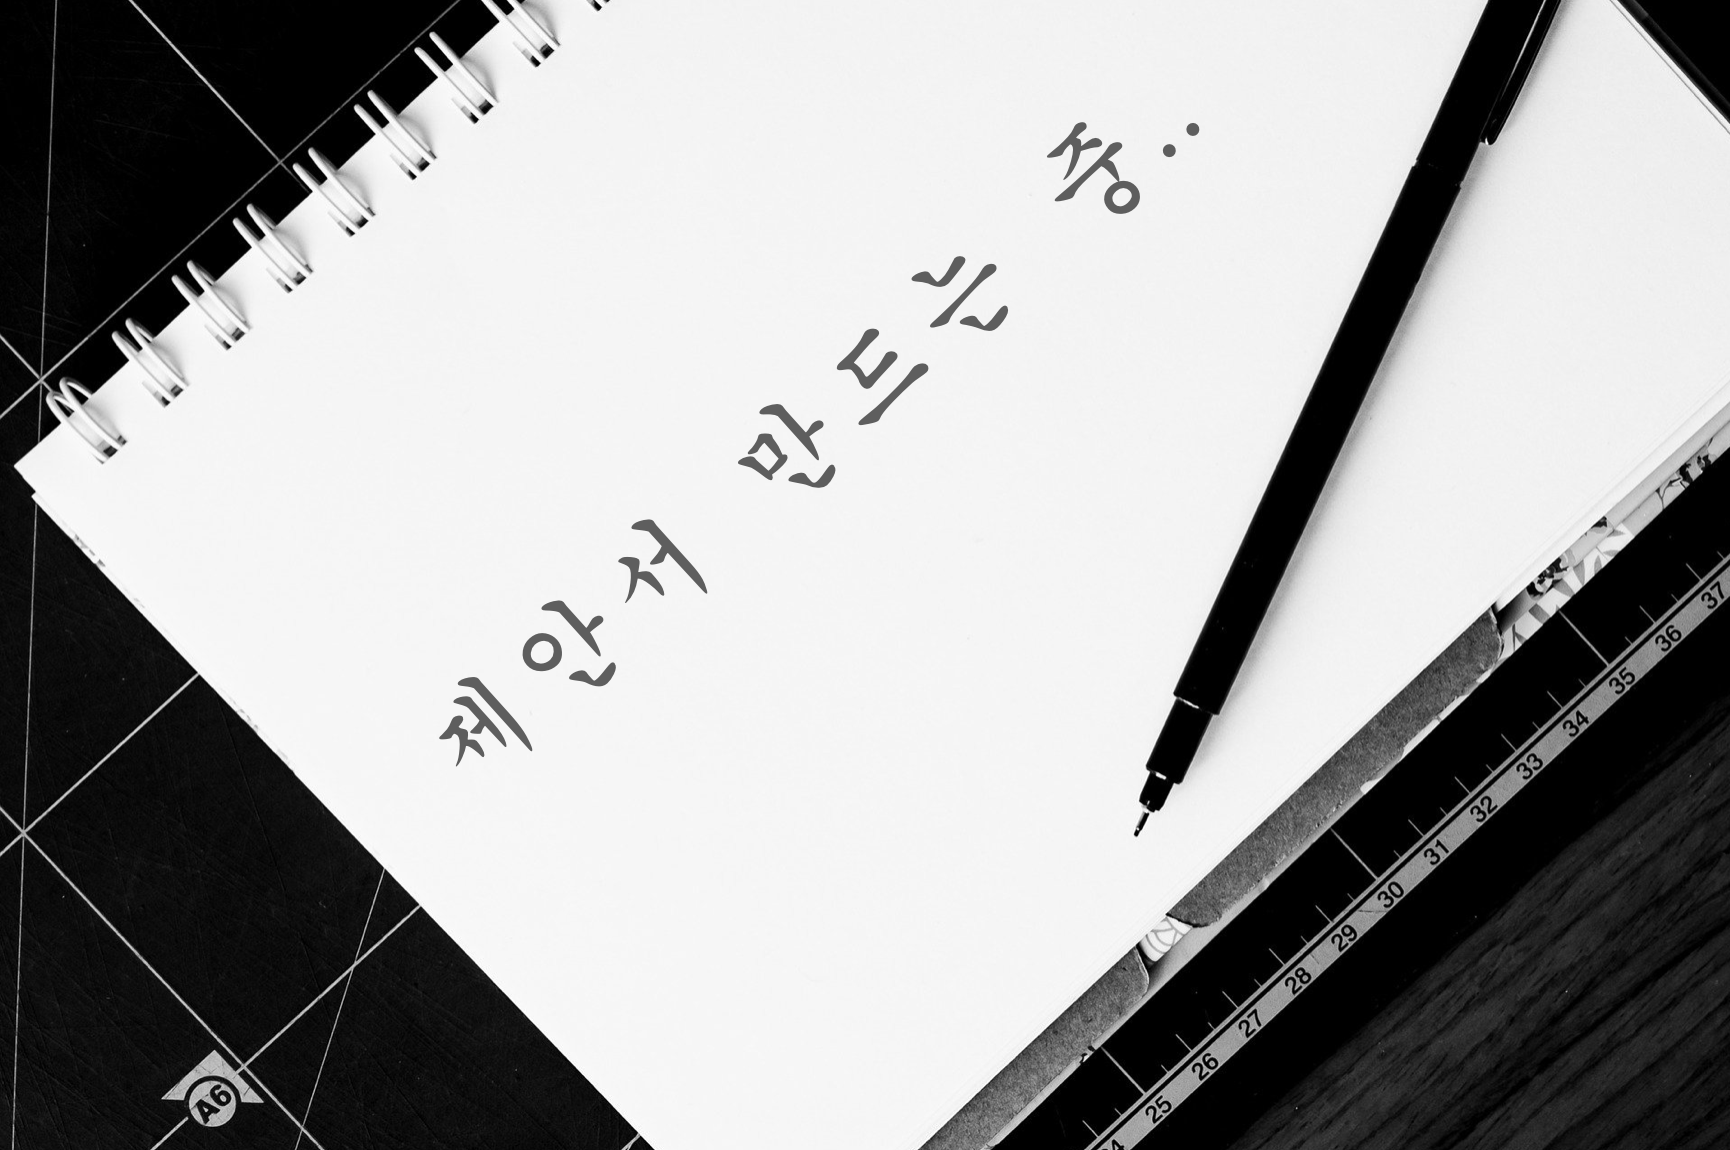 제안서 만드는 중..
A6
37
36
35
34
33
32
31
30
29
28
27
26
25